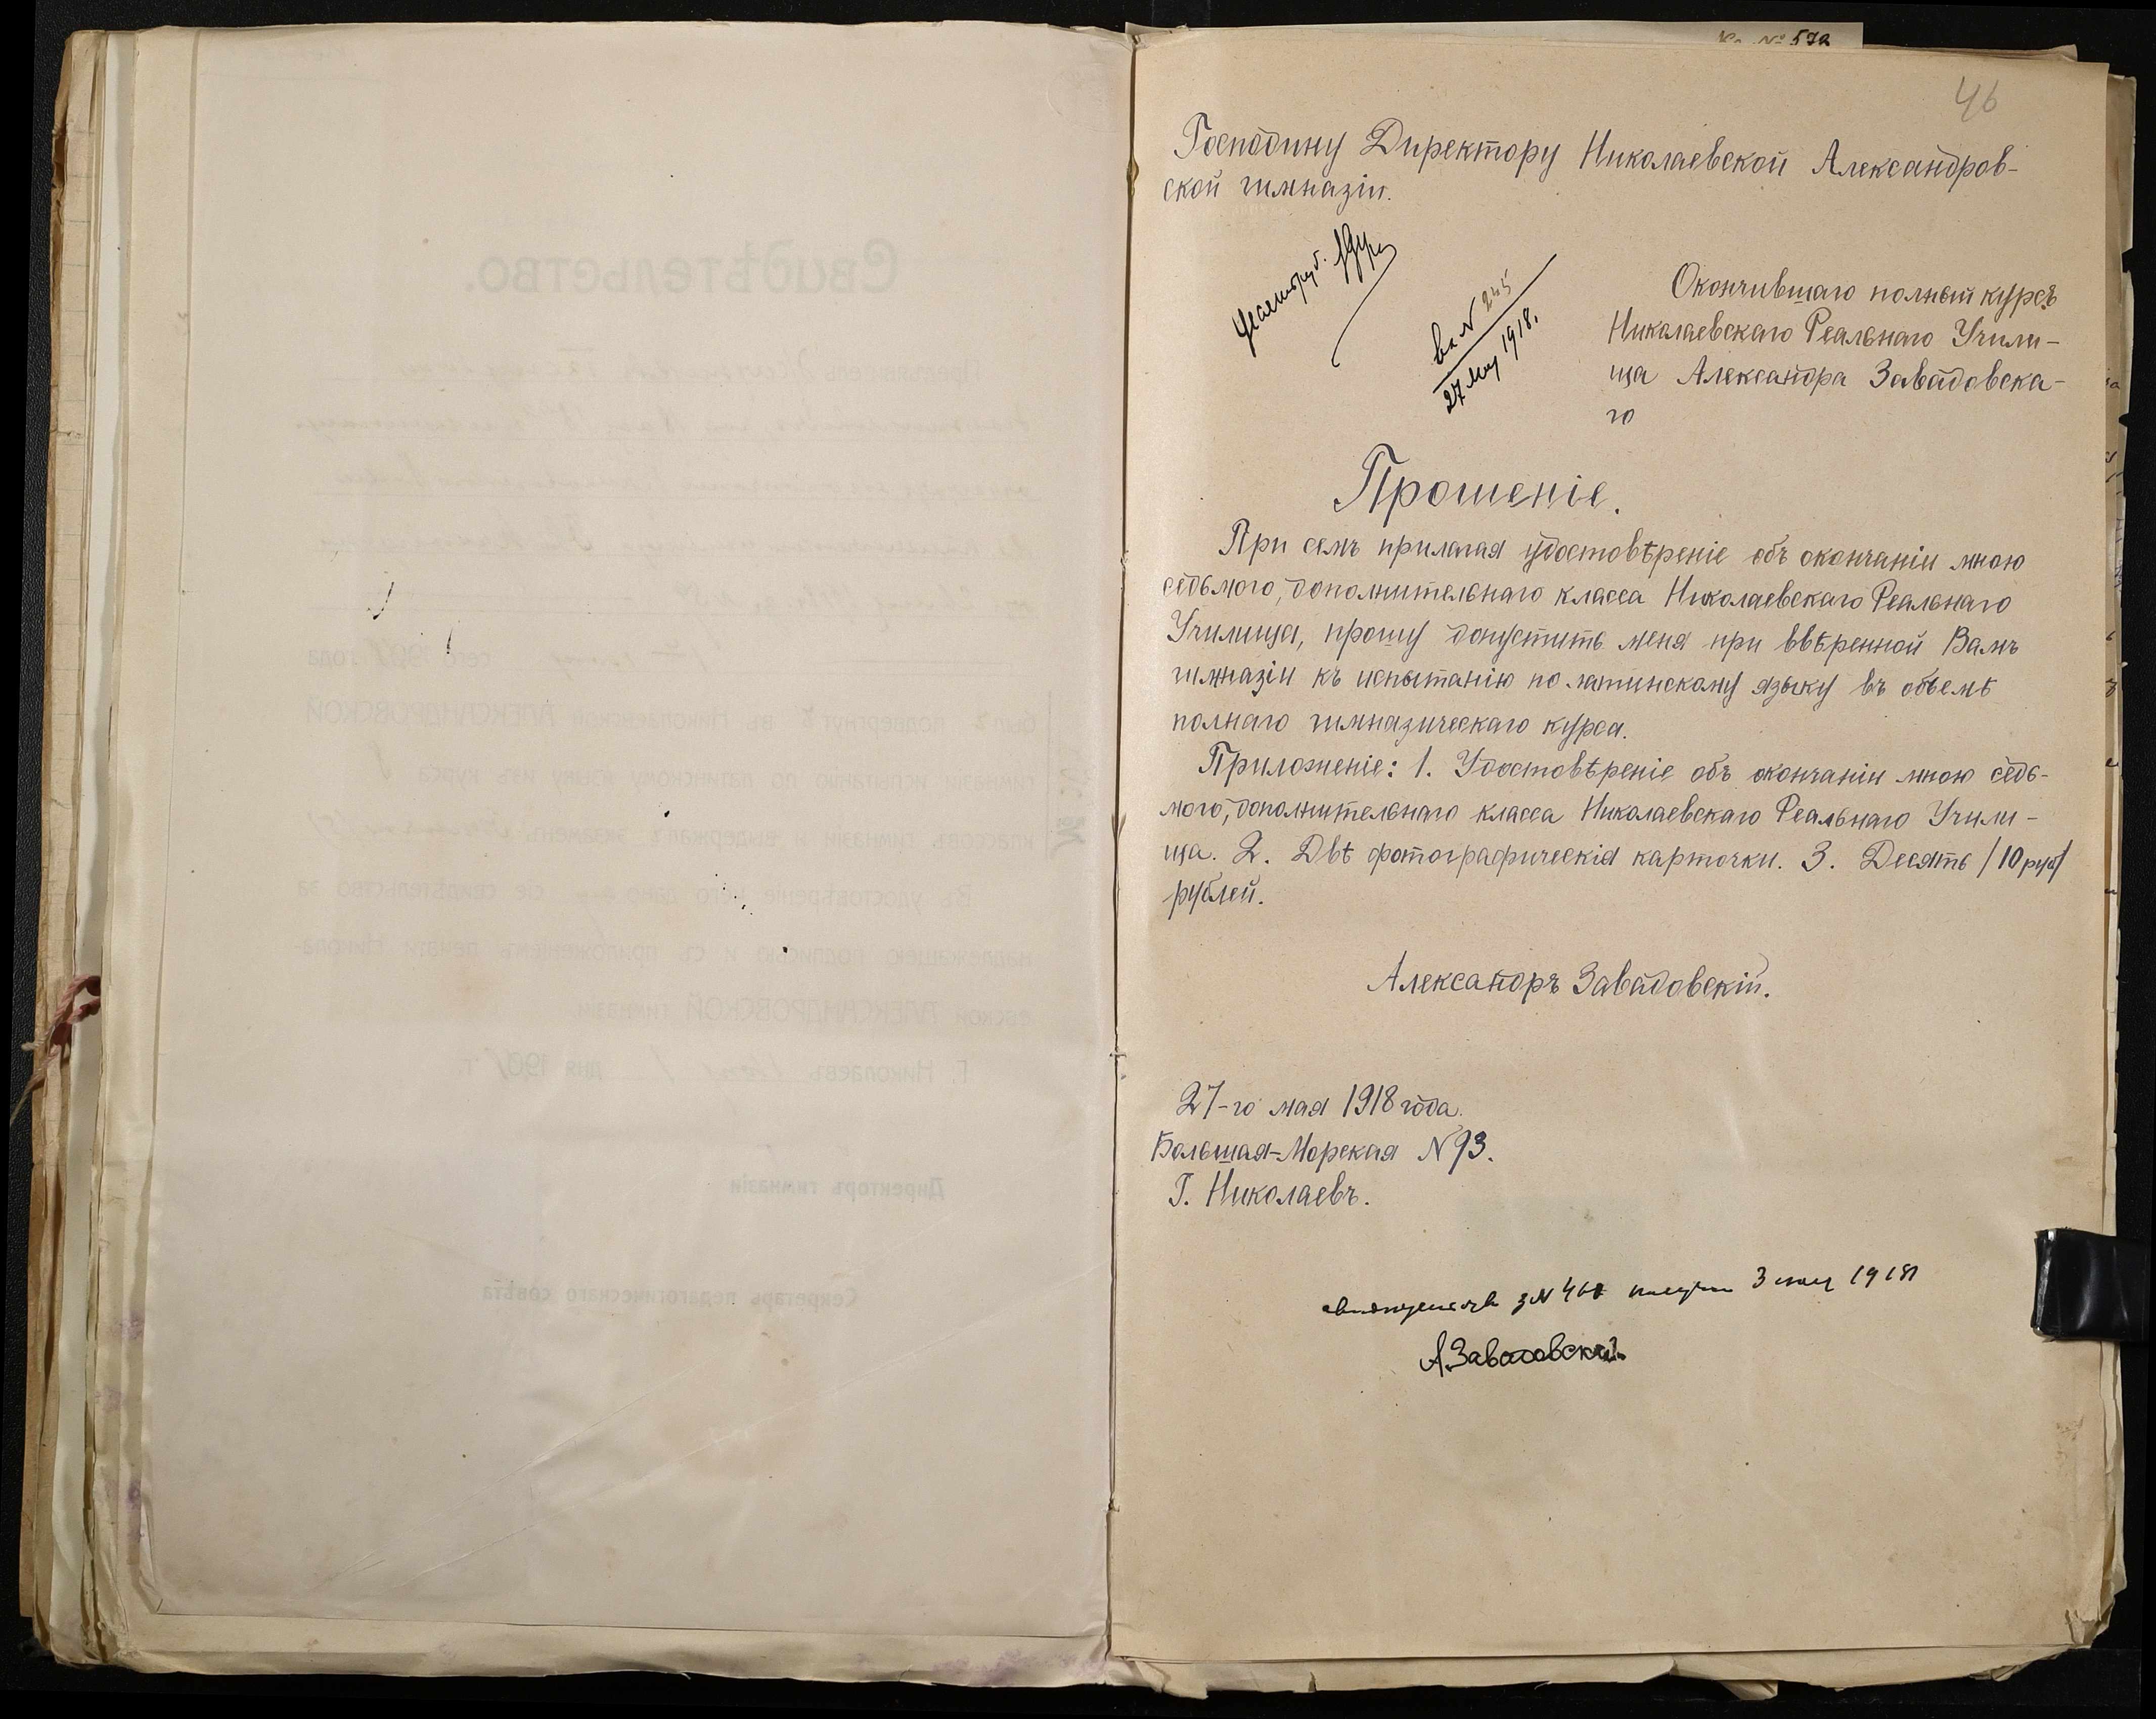 № 572
46
Господину Директору Николаевской Александров-
ской гимназіи.
вх N 245
27 мая 1918.
Окончившаго полный курсъ
Николаевскаго Реальнаго Учили-
ща Александра Завадовска-
го
Прошеніе.
При семъ прилагая удостовѣреніе объ окончаніи мною
седьмого, дополнительнаго класса Николаевскаго Реальнаго
Училища, прошу допустить меня при ввѣренной Вамъ
гимназіи къ испытанію по латинскому языку въ объемѣ
полнаго гимназическаго курса.
Приложеніе: 1. Удостовѣреніе объ окончаніи мною седь-
мого, дополнительнаго класса Николаевскаго Реальнаго Учили-
ща. 2. Двѣ фотографическія карточки. 3. Десять /10 руб/
рублей.
Александръ Завадовскій.
27-го мая 1918 года.
Большая-Морская N 93.
Г. Николаевъ.
3 1918
А.Завадовский
Свидѣтельство.
сего 190 года
былъ подвергнутъ въ Николаевской АЛЕКСАНДРОВСКОЙ
гимназіи испытанію по латинскому языку изъ курса
классовъ гимназіи и выдержалъ экзаменъ
Въ удостовѣреніе чего дано сіе свидѣтельство за
надлежащею подписью и съ приложеніемъ печати Никола-
евской АЛЕКСАНДРОВСКОЙ гимназіи.
Г. Николаевъ. дня 190 г.
Директоръ гимназіи
Секретарь педагогическаго совѣта